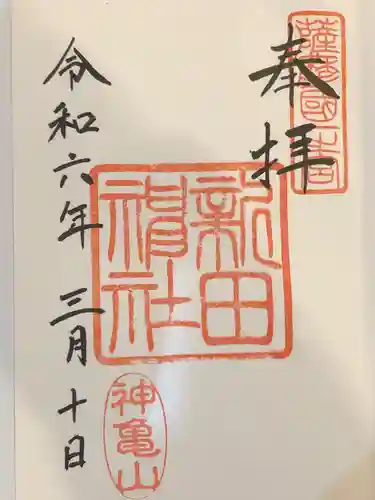 奉拝
薩摩國一宮
新田
神社
令和六年 三月 十日
神亀山